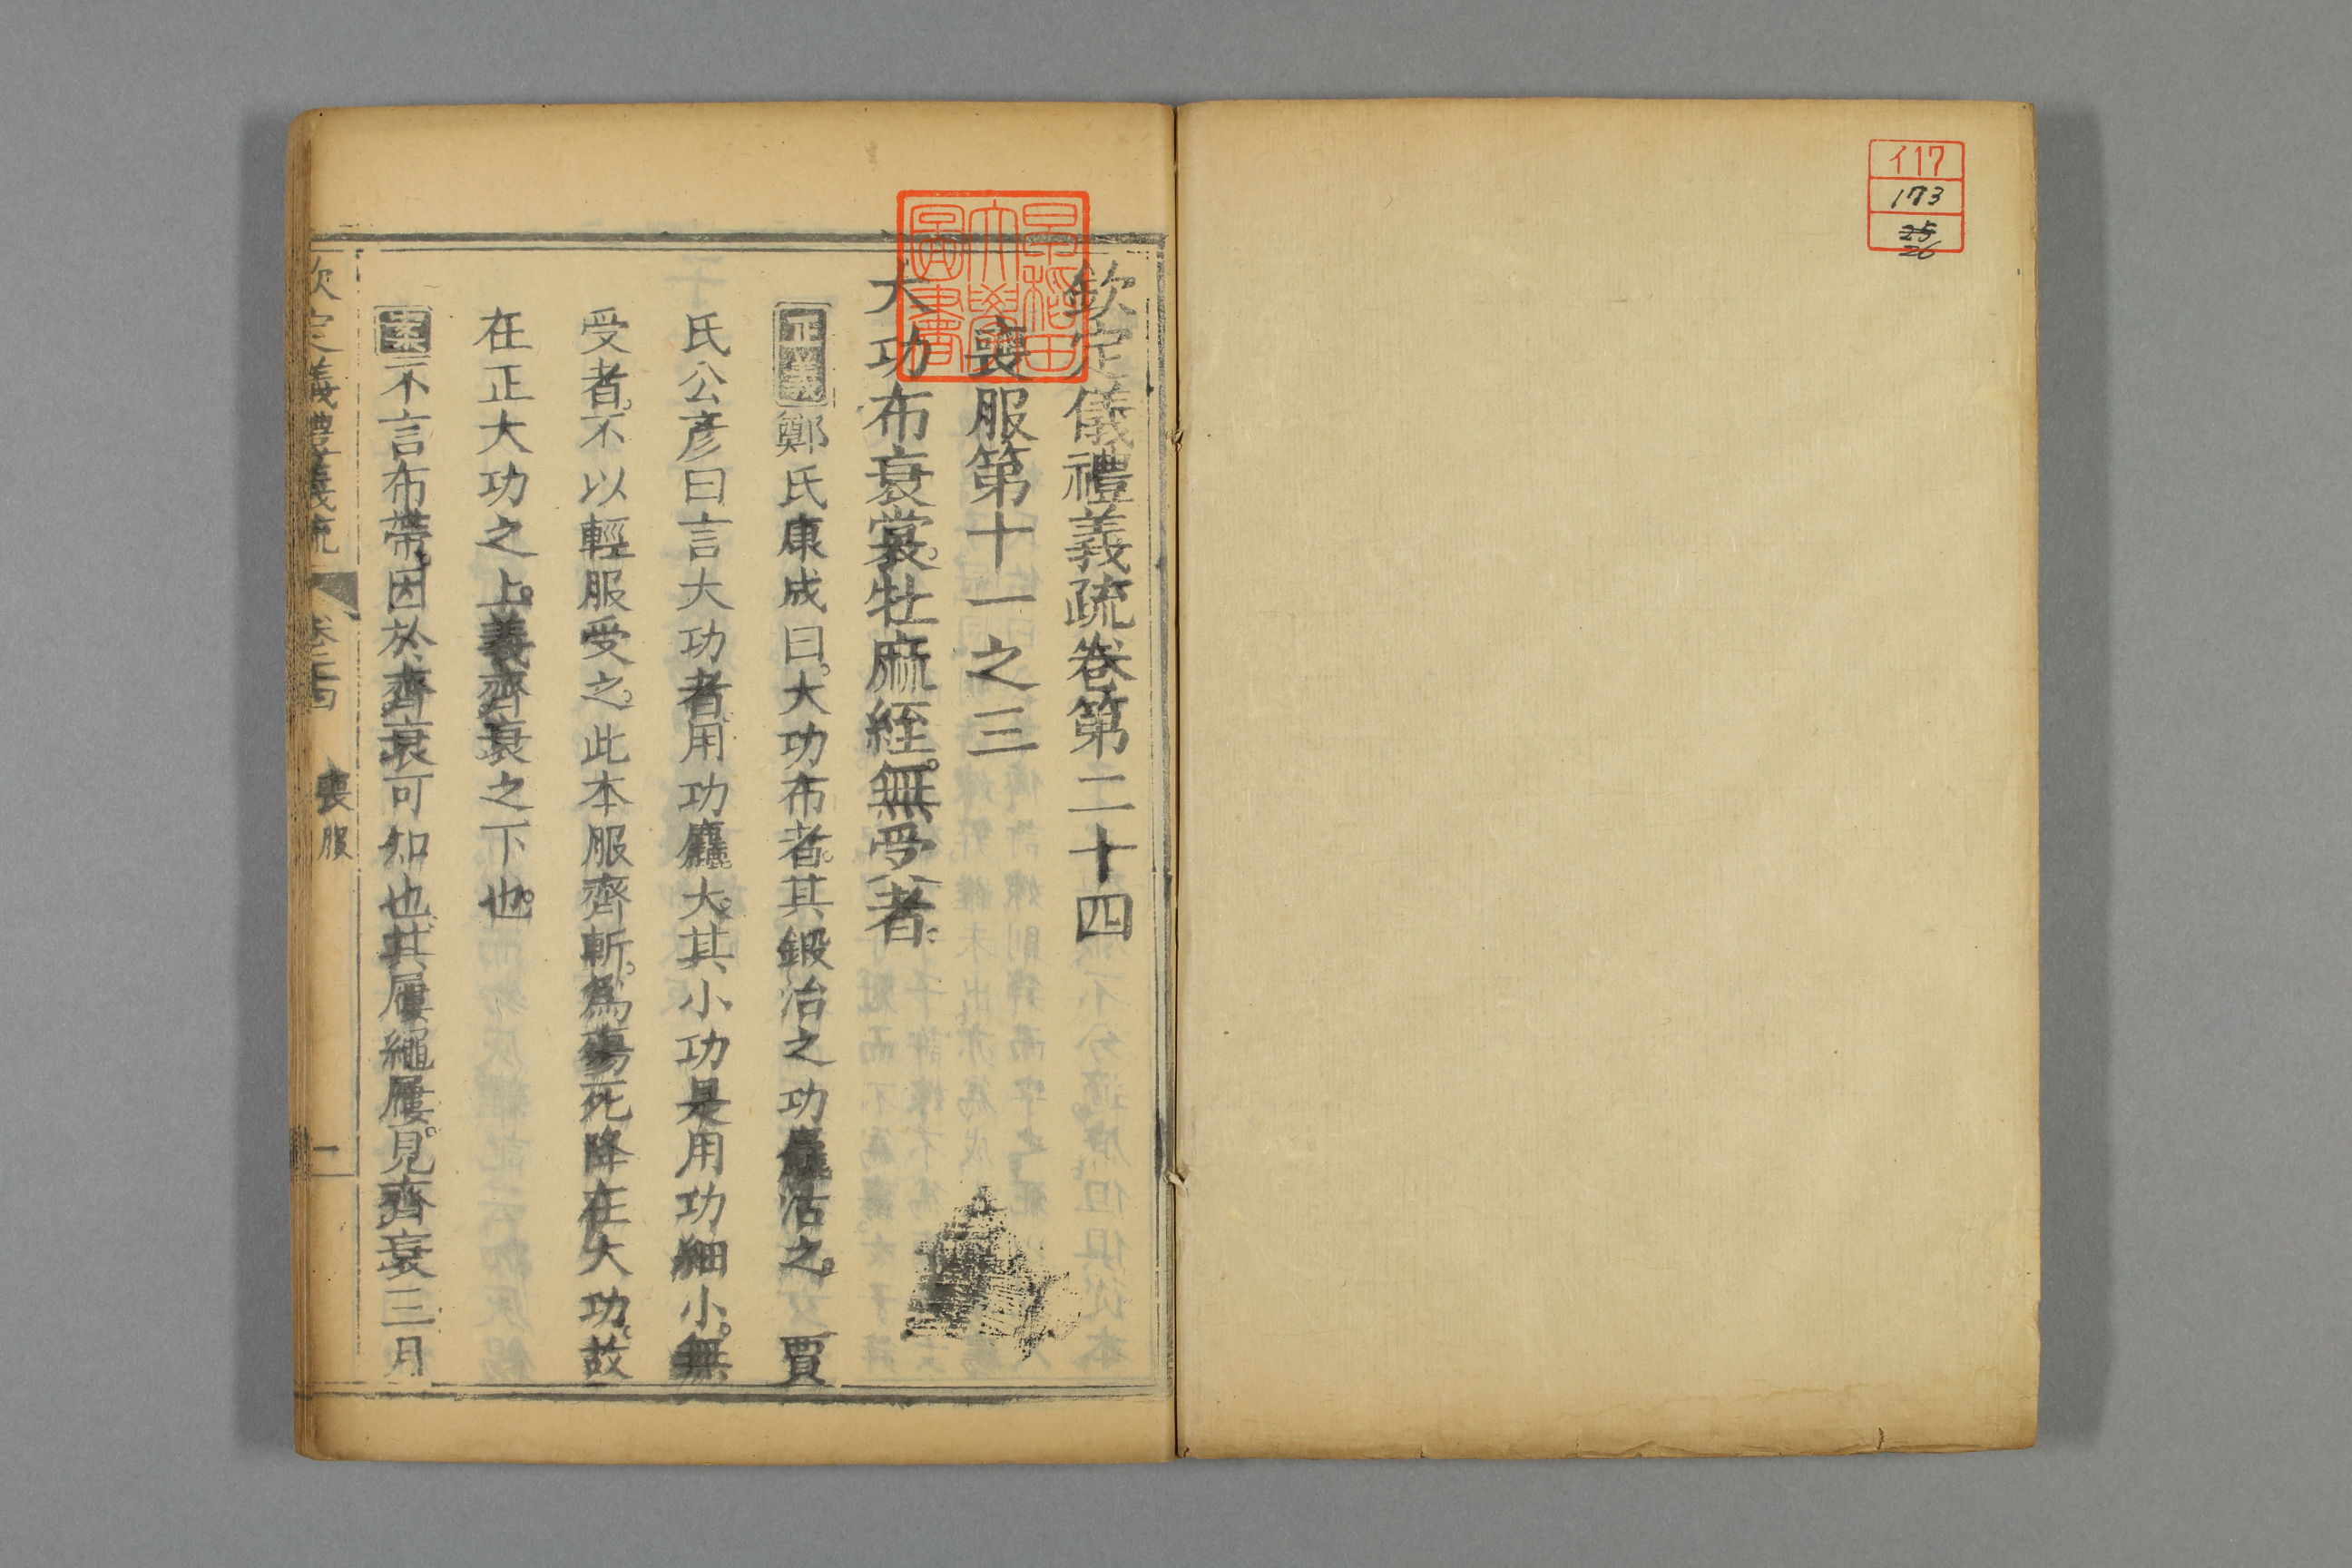 イ17
173
25
26
欽定儀禮義疏卷第二十四
喪服第十一之三
大功布衰裳。牡麻絰。無受者。
正義鄭氏康成曰。大功布者。其鍛治之功麤沽之。賈
氏公彥曰言大功者。用功麤大。其小功是用功細小。無
受者。不以輕服受之。此本服齊斬。爲殤死降在大功。故
在正大功之上。義齊衰之下也。
案不言布帶。因於齊衰可知也。其屨繩屨。見齊衰三月
欽定儀禮義疏 卷二十四 喪服 一
早稻田大學圖書